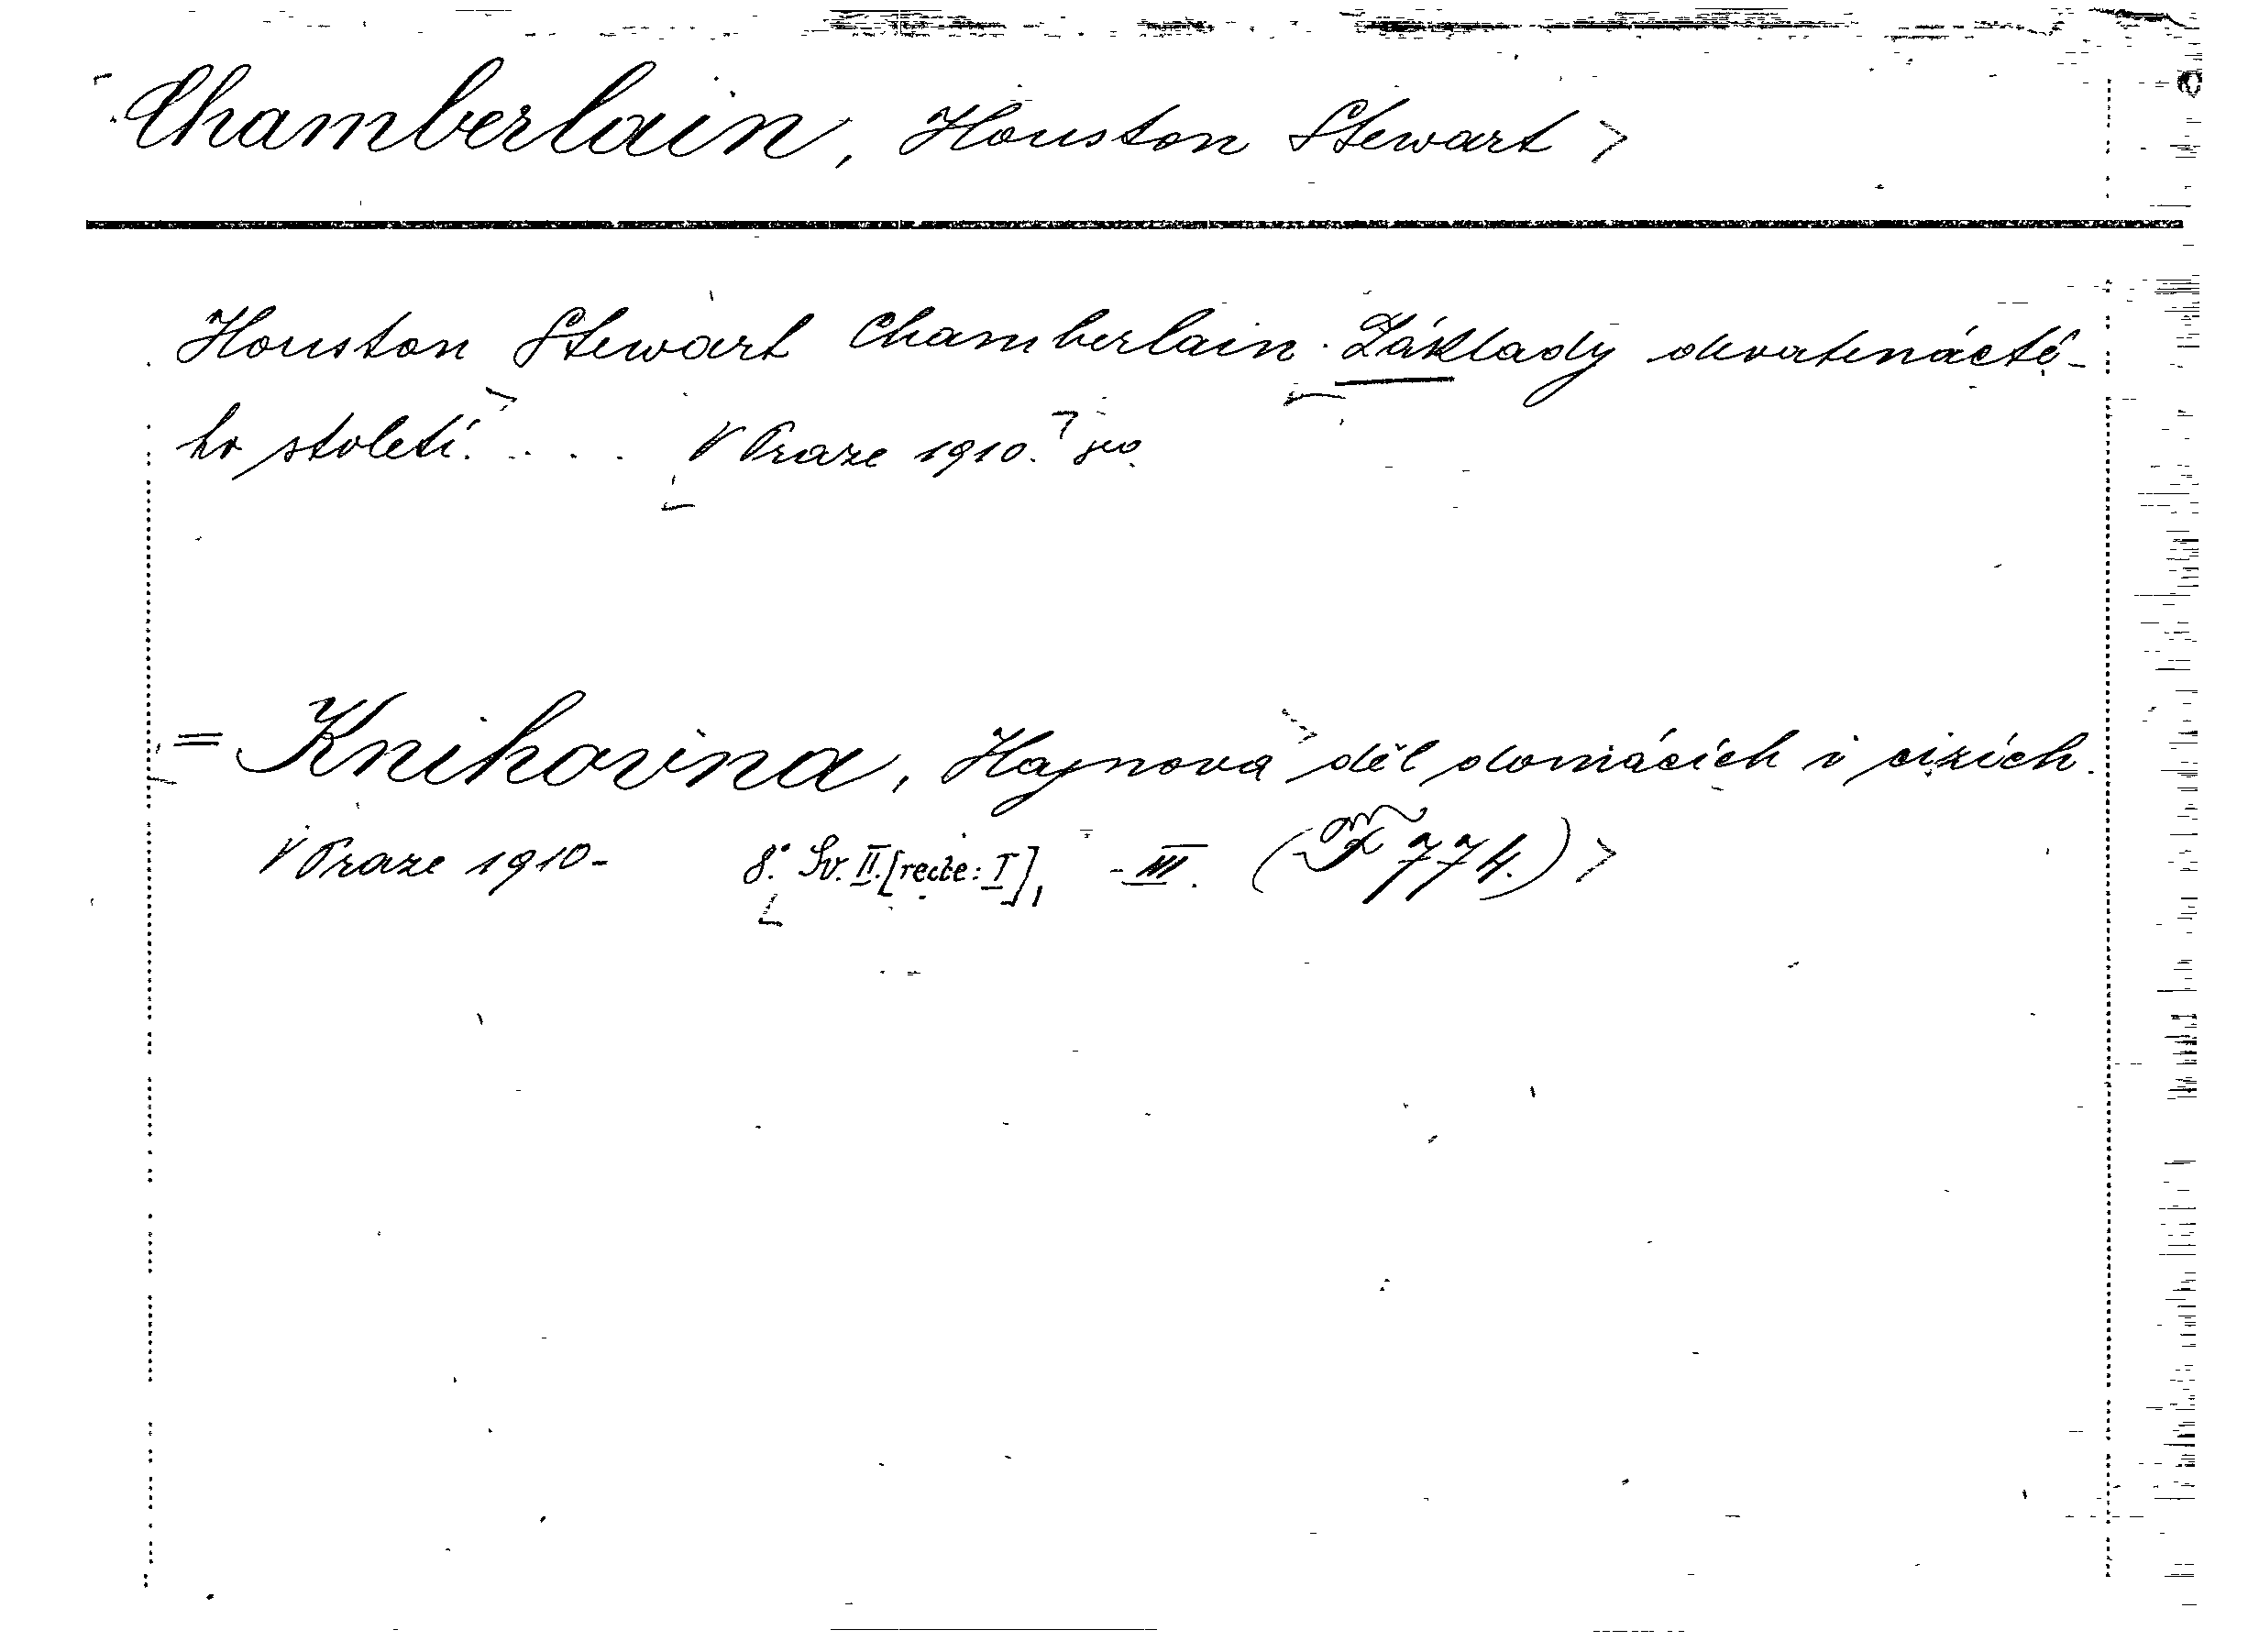 Chamberlain, Houston Stewart >
Houston Stewart Chamberlain. Základy devatenácté-
ho století. . . . . V Praze 1910. 8vo.
= Knihovna, Hajnova děl domácích i cizích.
V Praze 1910- 8°. Sv. II. [recte: I], - III. (F 774.) >